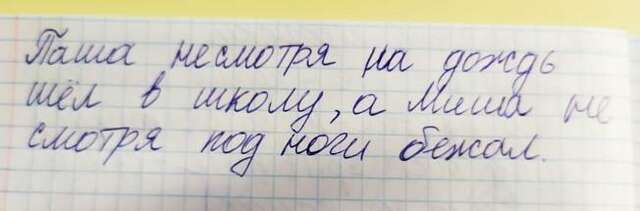 Паша несмотря на дождь
шёл в школу, а Миша не
смотря под ноги бежал.